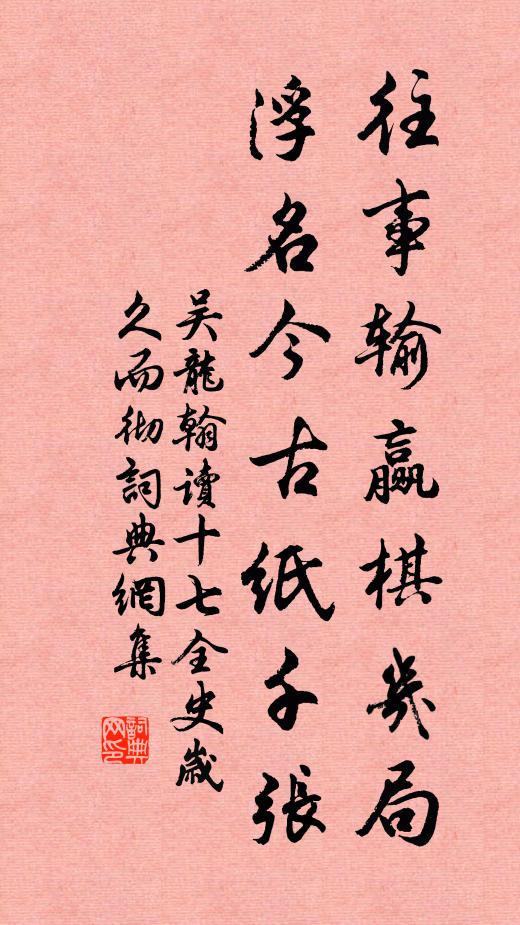 往事輸贏棋幾局
浮名今古紙千張
吴龍翰讀十七全史歲
久而彻詞典網集
詞典网印